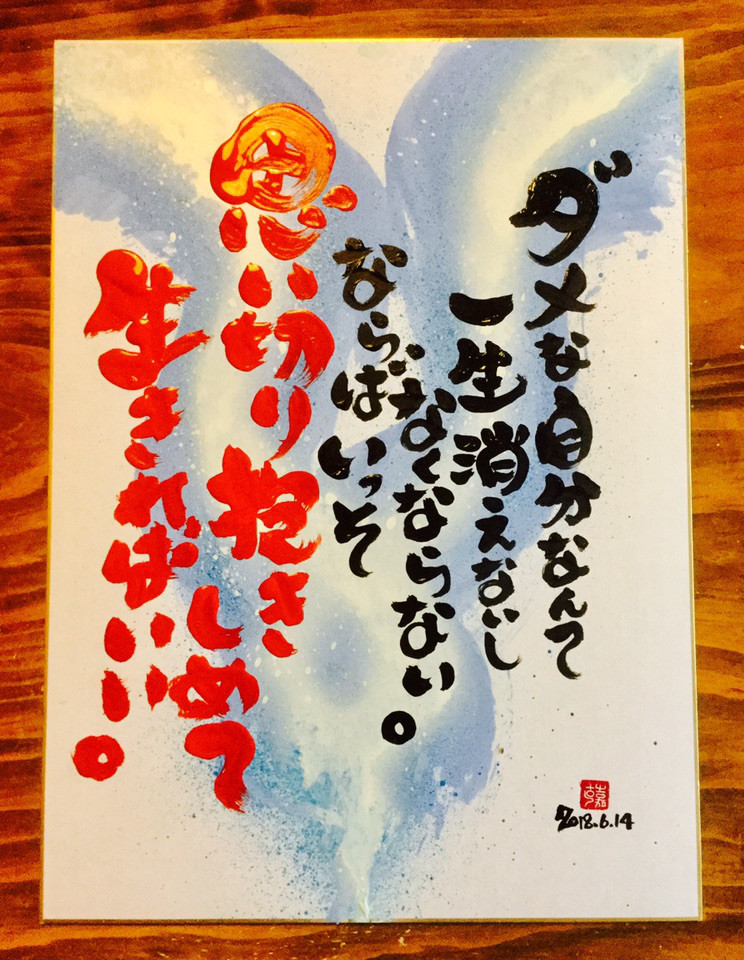 ダメな自分なんて
一生消えないし
なくならない。
ならばいっそ
思い切り抱き
しめて
生きればいい。
2018.6.14